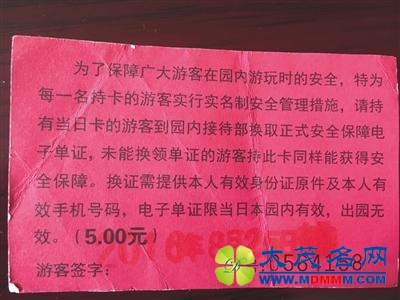 为了保障广大游客在园内游玩时的安全，特为
每一名持卡的游客实行实名制安全管理措施，请持
有当日卡的游客到园内接待部换取正式安全保障电
子单证，未能换领单证的游客持此卡同样能获得安
全保障。换证需提供本人有效身份证原件及本人有
效手机号码，电子单证限当日本园内有效，出园无
效。（5.00元）
游客签字：
大茂名网
WWW.MDMMM.COM